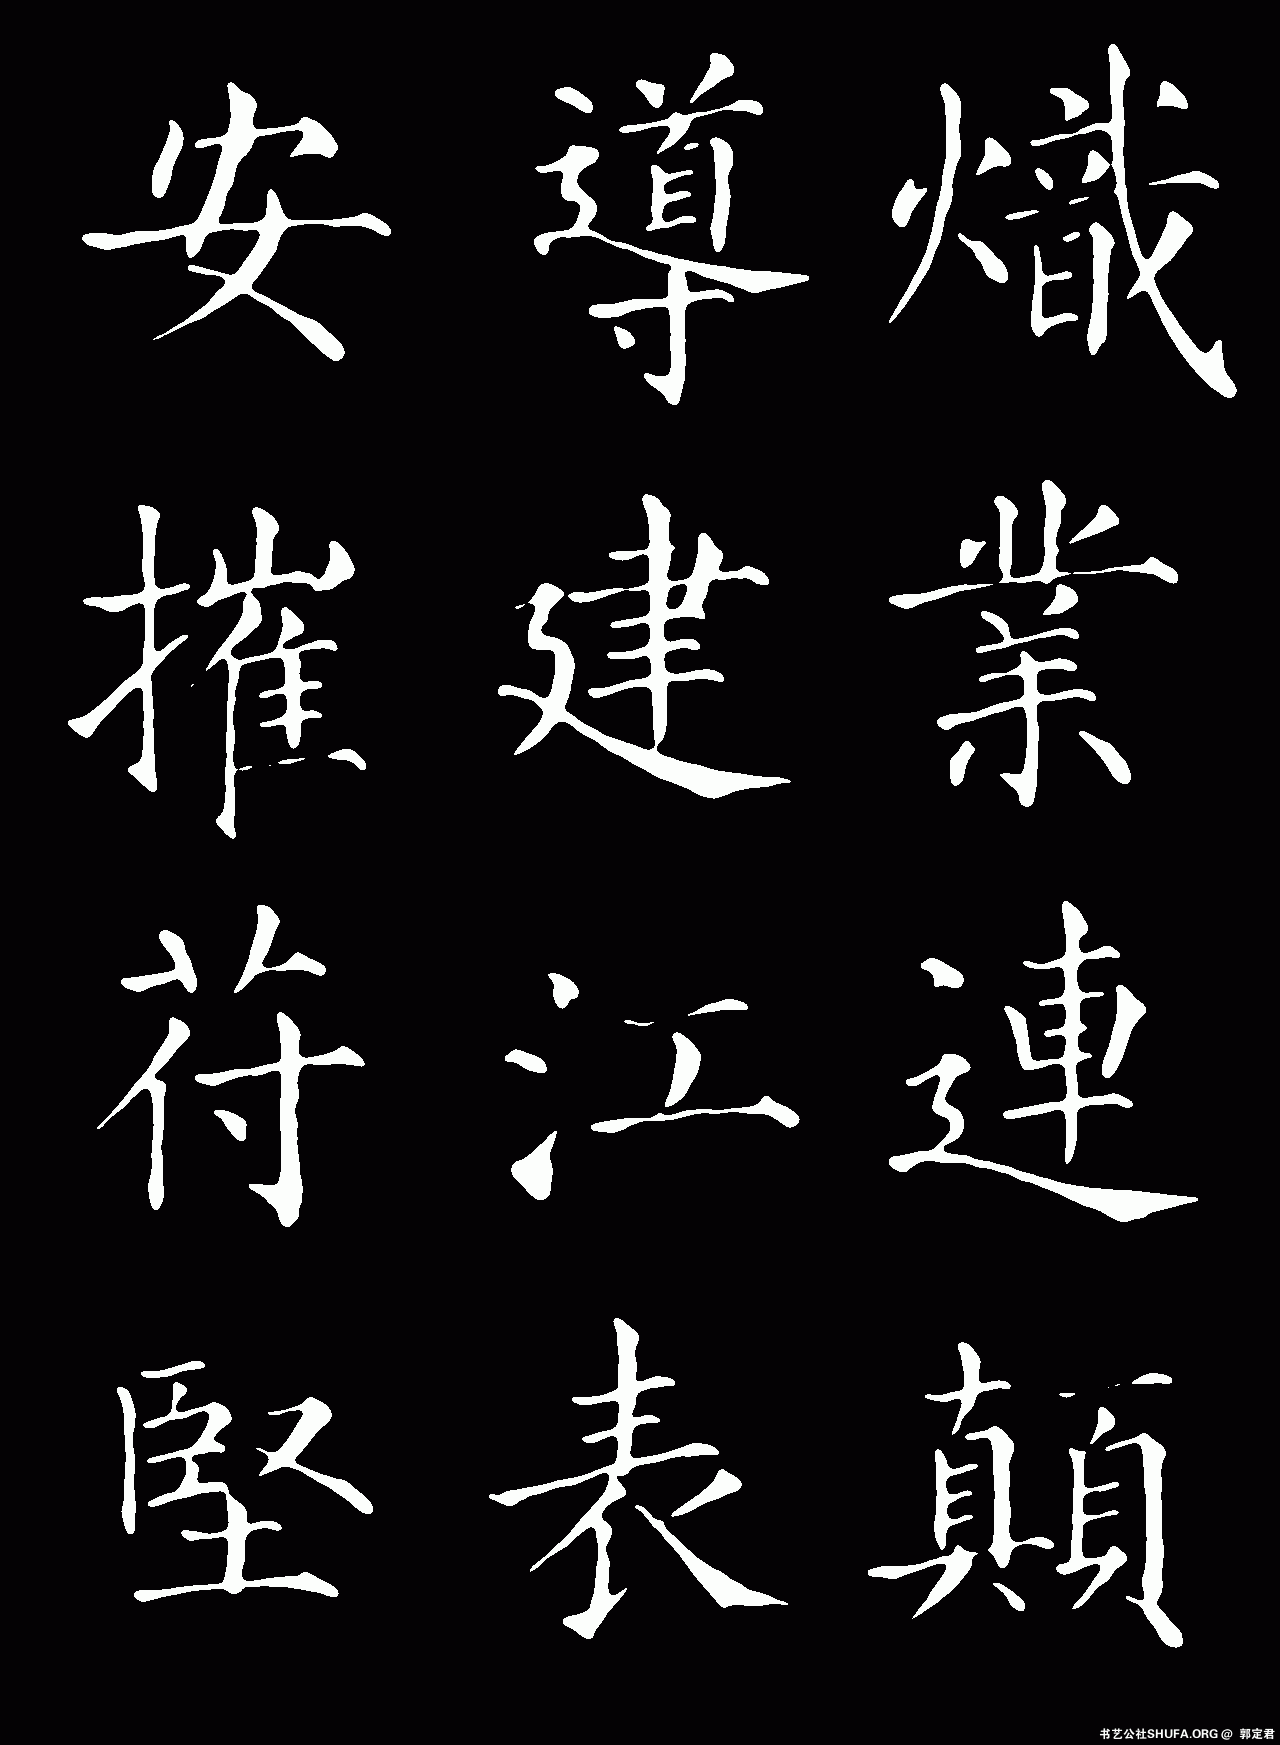 熾業連顛
導建江表
安摧苻堅
书艺公社SHUFA.ORG @ 郭定君